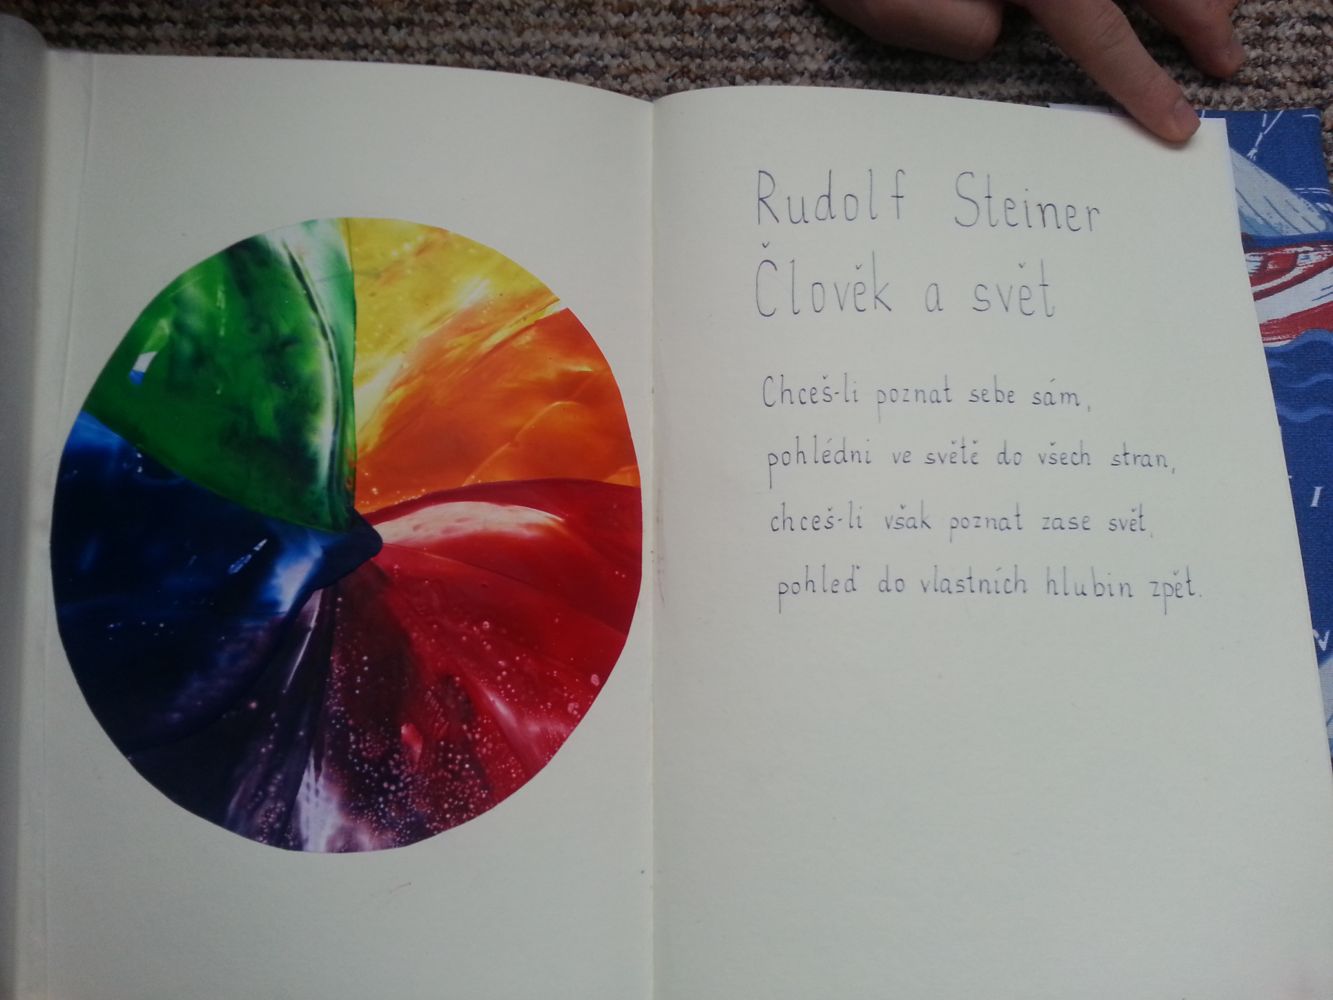 Rudolf Steiner
Člověk a svět
Chceš-li poznat sebe sám,
pohlédni ve světě do všech stran,
chceš-li však poznat zase svět,
pohleď do vlastních hlubin zpět.